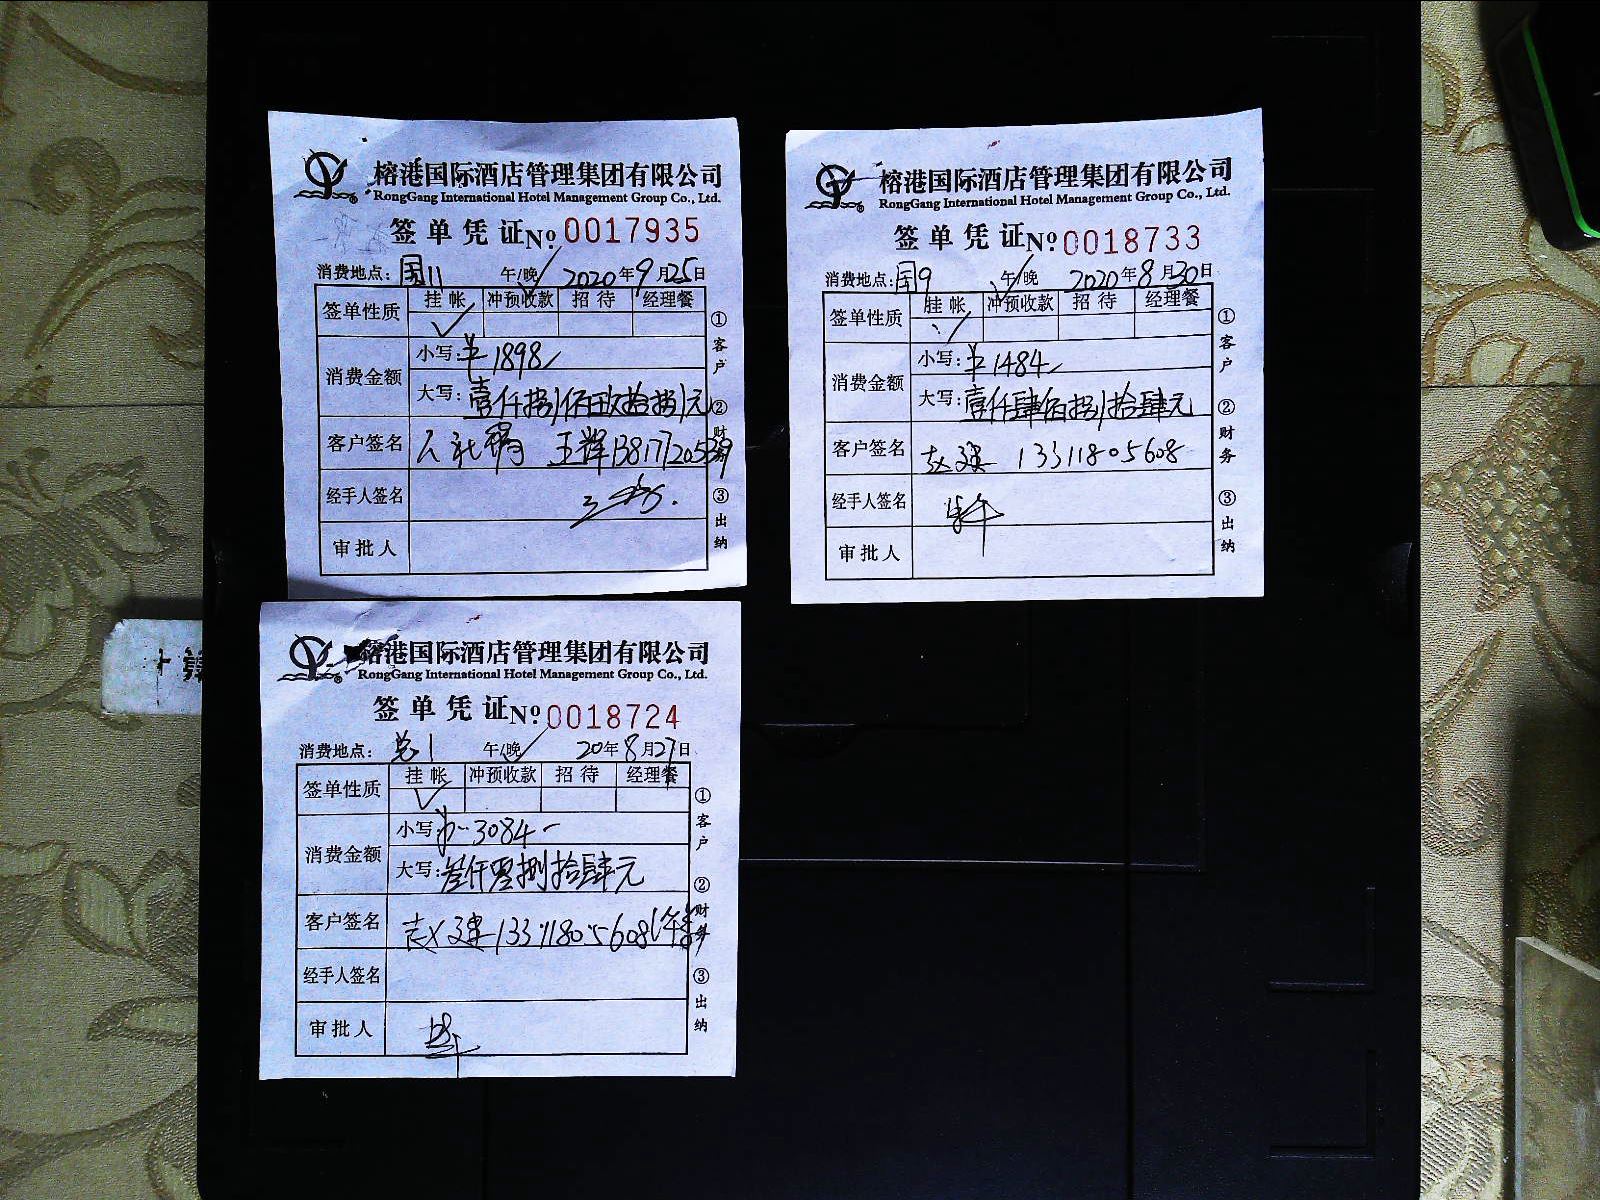 榕港国际酒店管理集团有限公司
RongGang International Hotel Management Group Co., Ltd.
签单凭证 No 0017935
消费地点: 国11 午/晚 2020年9月25日
签单性质 挂帐 冲预收款 招待 经理餐
消费金额 小写: 1898
大写: 壹仟捌佰玖拾捌元
客户签名 人社 王辉
经手人签名
审批人
①客户 ②财务 ③出纳
榕港国际酒店管理集团有限公司
RongGang International Hotel Management Group Co., Ltd.
签单凭证 No 0018733
消费地点: 国9 午/晚 2020年8月30日
签单性质 挂帐 冲预收款 招待 经理餐
消费金额 小写: 1484
大写: 壹仟肆佰捌拾肆元
客户签名 赵建 13311805608
经手人签名
审批人
①客户 ②财务 ③出纳
榕港国际酒店管理集团有限公司
RongGang International Hotel Management Group Co., Ltd.
签单凭证 No 0018724
消费地点: 总1 午/晚 20年8月27日
签单性质 挂帐 冲预收款 招待 经理餐
消费金额 小写: 3084
大写: 叁仟零捌拾肆元
客户签名 赵建 13311805608
经手人签名
审批人
①客户 ②财务 ③出纳